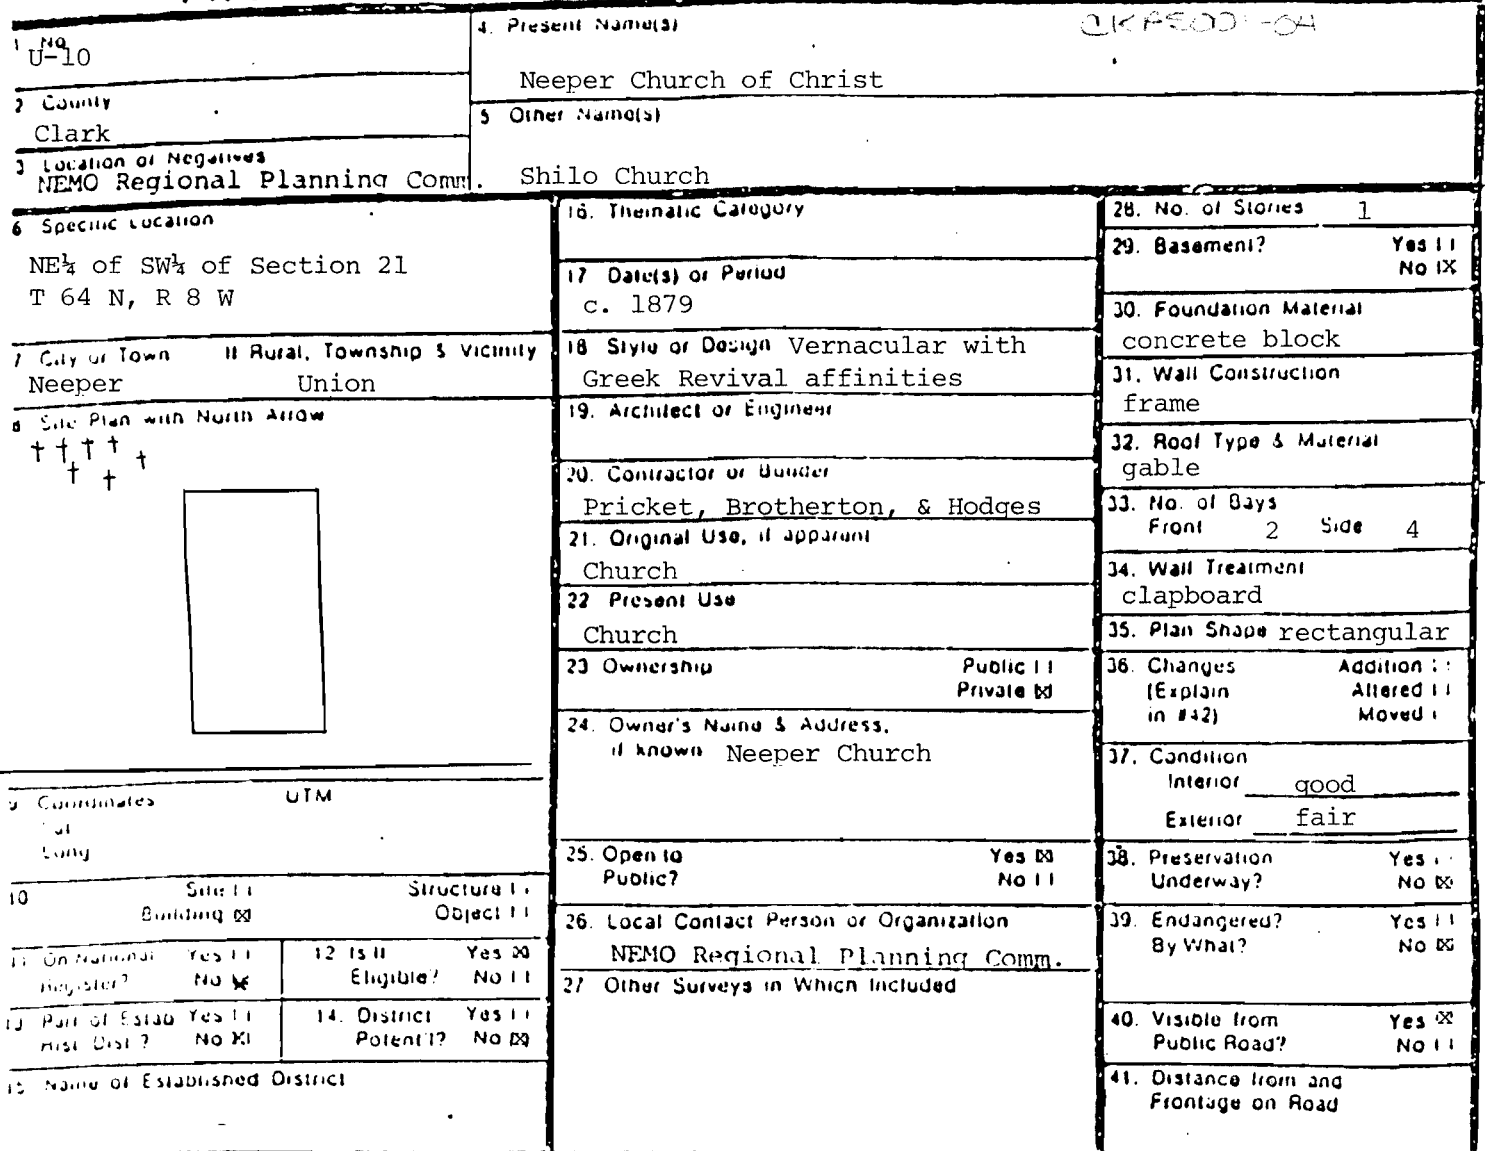 1 No.
U-10
4. Present Name(s)
Neeper Church of Christ
2 County
Clark
5 Other Name(s)
Shilo Church
3 Location of Negatives
NEMO Regional Planning Comm.
6 Specific Location
NE¼ of SW¼ of Section 21
T 64 N, R 8 W
7 City or Town If Rural, Township & Vicinity
Neeper Union
8 Site Plan with North Arrow
9 Coordinates UTM
Lat
Long
10 Site [ ] Structure [ ]
Building [X] Object [ ]
11 On National Yes [ ]
Register? No [X]
12 Is It Yes [X]
Eligible? No [ ]
13 Part of Estab Yes [ ]
Hist Dist? No [X]
14. District Yes [ ]
Potent'l? No [X]
15 Name of Established District
16. Thematic Category
17 Date(s) or Period
c. 1879
18 Style or Design Vernacular with
Greek Revival affinities
19. Architect or Engineer
20. Contractor or Builder
Pricket, Brotherton, & Hodges
21. Original Use, if apparent
Church
22 Present Use
Church
23 Ownership Public [ ]
Private [X]
24. Owner's Name & Address,
if known Neeper Church
25. Open to Yes [X]
Public? No [ ]
26. Local Contact Person or Organization
NEMO Regional Planning Comm.
27 Other Surveys in Which Included
28. No. of Stories 1
29. Basement? Yes [ ]
No [X
30. Foundation Material
concrete block
31. Wall Construction
frame
32. Roof Type & Material
gable
33. No. of Bays
Front 2 Side 4
34. Wall Treatment
clapboard
35. Plan Shape rectangular
36. Changes Addition [ ]
(Explain Altered [ ]
in #42) Moved [
37. Condition
Interior good
Exterior fair
38. Preservation Yes [ ]
Underway? No [X]
39. Endangered? Yes [ ]
By What? No [X]
40. Visible from Yes [X]
Public Road? No [ ]
41. Distance from and
Frontage on Road